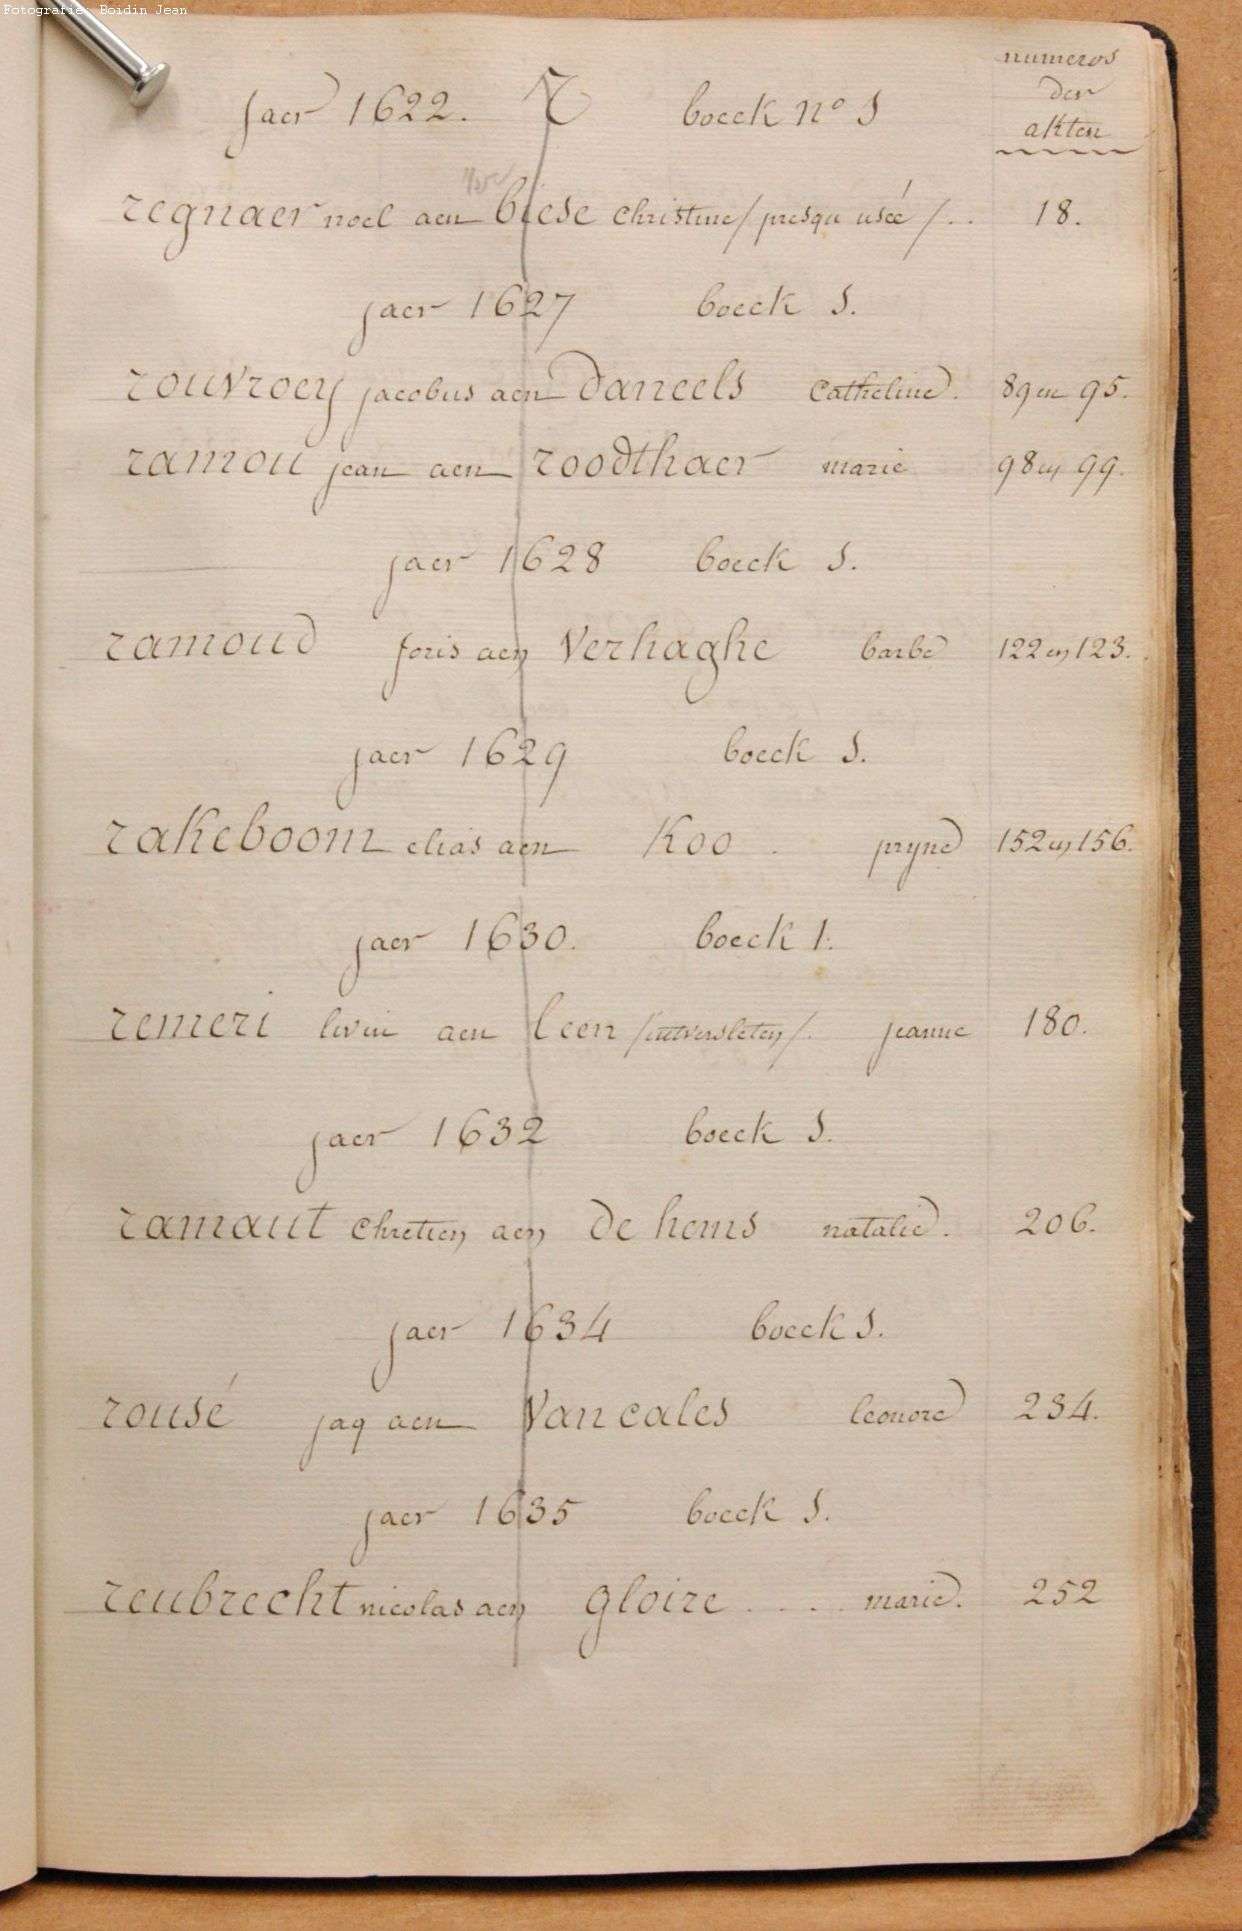 Fotografie: Boidin Jean
numeros
der
akten
jaer 1622. R boeck nº 1
regnaer noel aen biese christine / presqu usée / .. 18.
jaer 1627 boeck 1.
rouvroey jacobus aen daneels catheline. 89 en 95.
ramou jean aen roodthaer marie 98 en 99.
jaer 1628 boeck 1.
ramoud joris aen Verhaghe barbe 122 en 123.
jaer 1629 boeck 1.
rakeboom elias aen Koo . pryne 152 en 156.
jaer 1630. boeck 1.
remeri livin aen leen / uutversleten /. jeanne 180.
jaer 1632 boeck 1.
ramaut chretien aen de hems natalie. 206.
jaer 1634 boeck 1.
rousé jaq aen Van eales leonore 234.
jaer 1635 boeck 1.
reubrecht nicolas aen gloire .... marie. 252